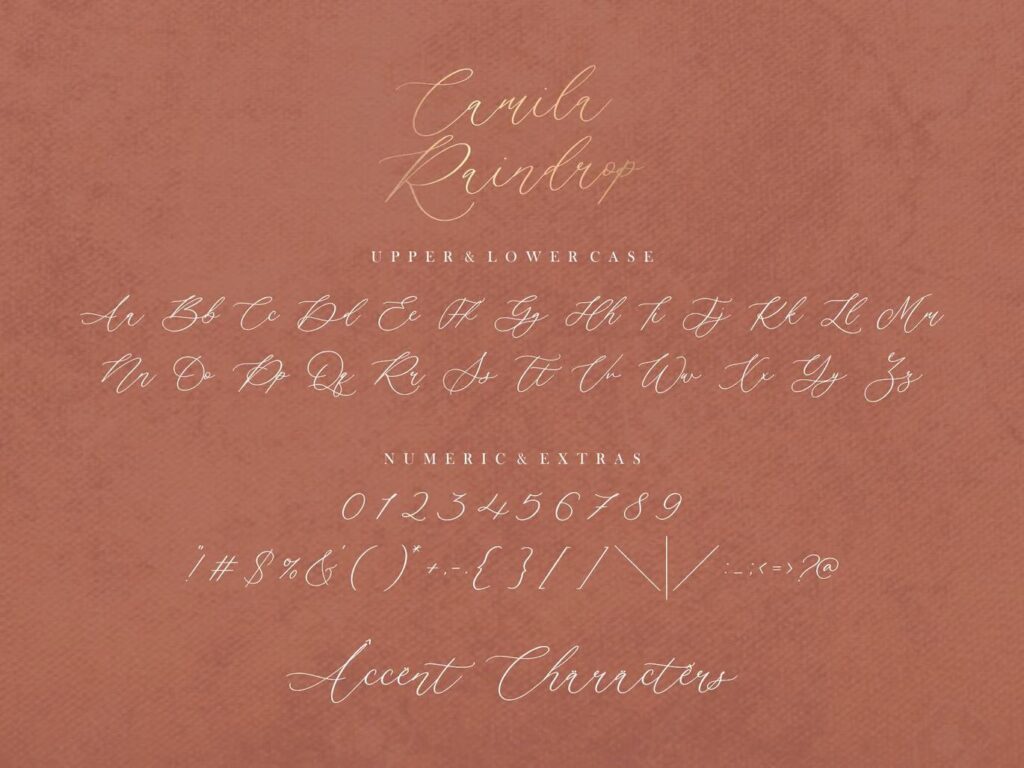 Camila
Raindrop
UPPER & LOWERCASE
Aa Bb Cc Dd Ee Ff Gg Hh Ii Jj Kk Ll Mm
Nn Oo Pp Qq Rr Ss Tt Uu Ww Xx Yy Zz
NUMERIC & EXTRAS
0123456789
"!#$%&'()*+,-.{}[]\|/:_;<=>?@
Accent Characters